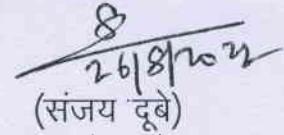 26/8/2022
(संजय दूबे)